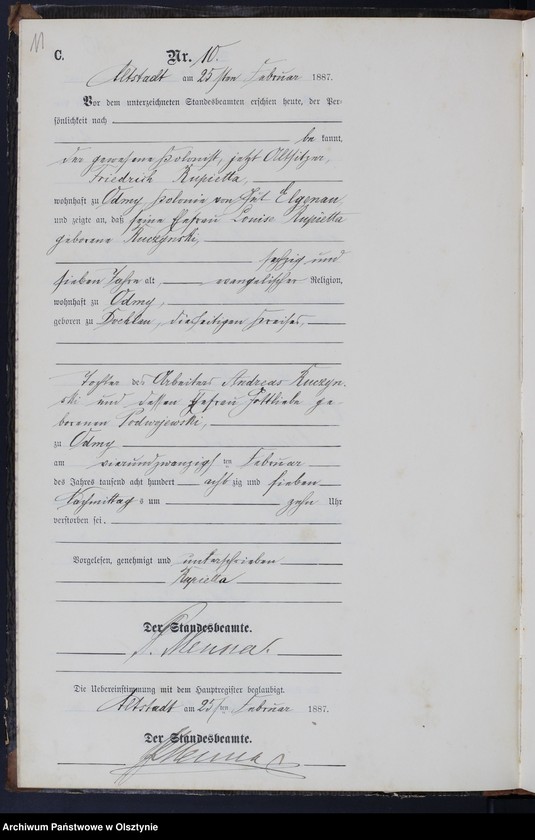 11
C. Nr. 10.
Altstadt am 25 ten Februar 1887.
Vor dem unterzeichneten Standesbeamten erschien heute, der Per-
sönlichkeit nach
be kannt,
der gewesene Kolonist, jetzt Altsitzer,
Friedrich Kupietta,
wohnhaft zu Odmy Kolonie von Gut Elgenau,
und zeigte an, daß seine Ehefrau Louise Kupietta
geborene Kuczynski,
sechzig und
sieben Jahre alt, evangelischer Religion,
wohnhaft zu Odmy,
geboren zu diesseitigen Kreises,
Tochter des Arbeiters Andreas Kuczyn-
ski und dessen Ehefrau Gottliebe ge-
borenen Podwojewski,
zu Odmy
am vierundzwanzigsten Februar
des Jahres tausend acht hundert acht zig und sieben
Nachmittag s um zehn Uhr
verstorben sei.
Vorgelesen, genehmigt und unterschrieben
Kupietta
Der Standesbeamte.
Die Uebereinstimmung mit dem Hauptregister beglaubigt.
Altstadt am 25 ten Februar 1887.
Der Standesbeamte.
Archiwum Państwowe w Olsztynie